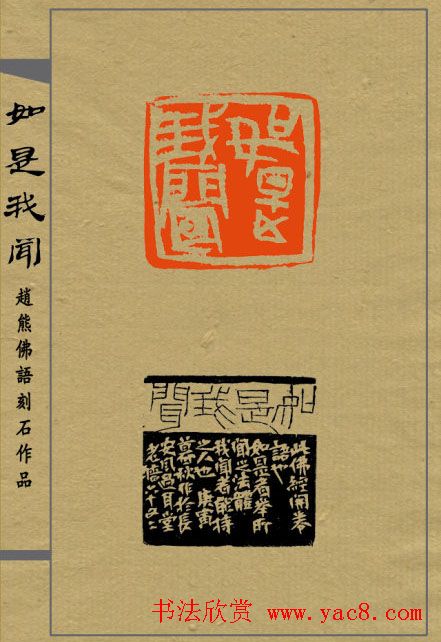 如是我聞
趙熊佛語刻石作品
如是
我聞
如是我聞
此佛經開卷
語也
如是者舉所
聞之法體
我聞者能持
之人也 庚寅
首秋作於長
安風過耳堂
六十又二
书法欣赏 www.yac8.com